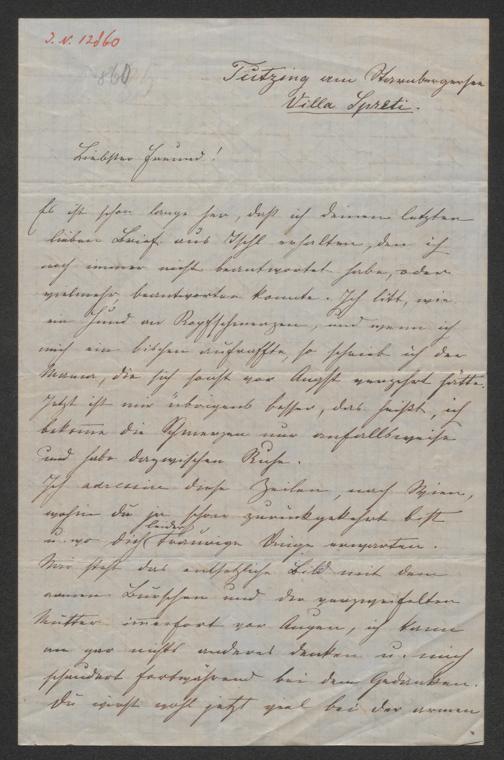 I. N. 12860
860
Tutzing am Starnbergersee
Villa Spreti.
Liebster Freund!
Es ist schon lange her, daß ich deinen letzten
lieben Brief aus Ischl erhalten, den ich
noch immer nicht beantwortet habe, oder
vielmehr, beantworten konnte. Ich litt, wie
ein Hund an Kopfschmerzen, und wenn ich
mich ein bischen aufraffte, so schrieb ich der
Mama, die sich sonst vor Angst verzehrt hätte.
Jetzt ist mir übrigens besser, das heißt, ich
bekomme die Schmerzen nur anfallsweise
und habe dazwischen Ruhe.
Ich adressire diese Zeilen, nach Wien,
wohin du ja schon zurückgekehrt bist
u. wo dich leider traurige Dinge erwarten.
Mir steht das entsetzliche Bild mit dem
armen Burschen und der verzweifelten
Mutter immerfort vor Augen, ich kann
an gar nichts anderes denken u. mich
schaudert fortwährend bei dem Gedanken.
Du wirst wohl jetzt viel bei der armen